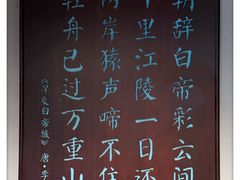 朝辞白帝彩云间
千里江陵一日还
两岸猿声啼不住
轻舟已过万重山
《早发白帝城》唐·李